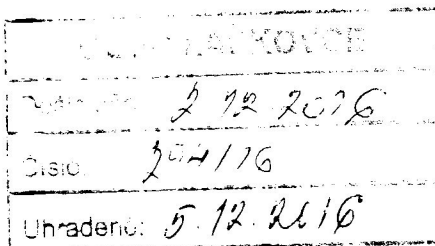 2.12.2016
Číslo: 294/16
Uhradené: 5.12.2016